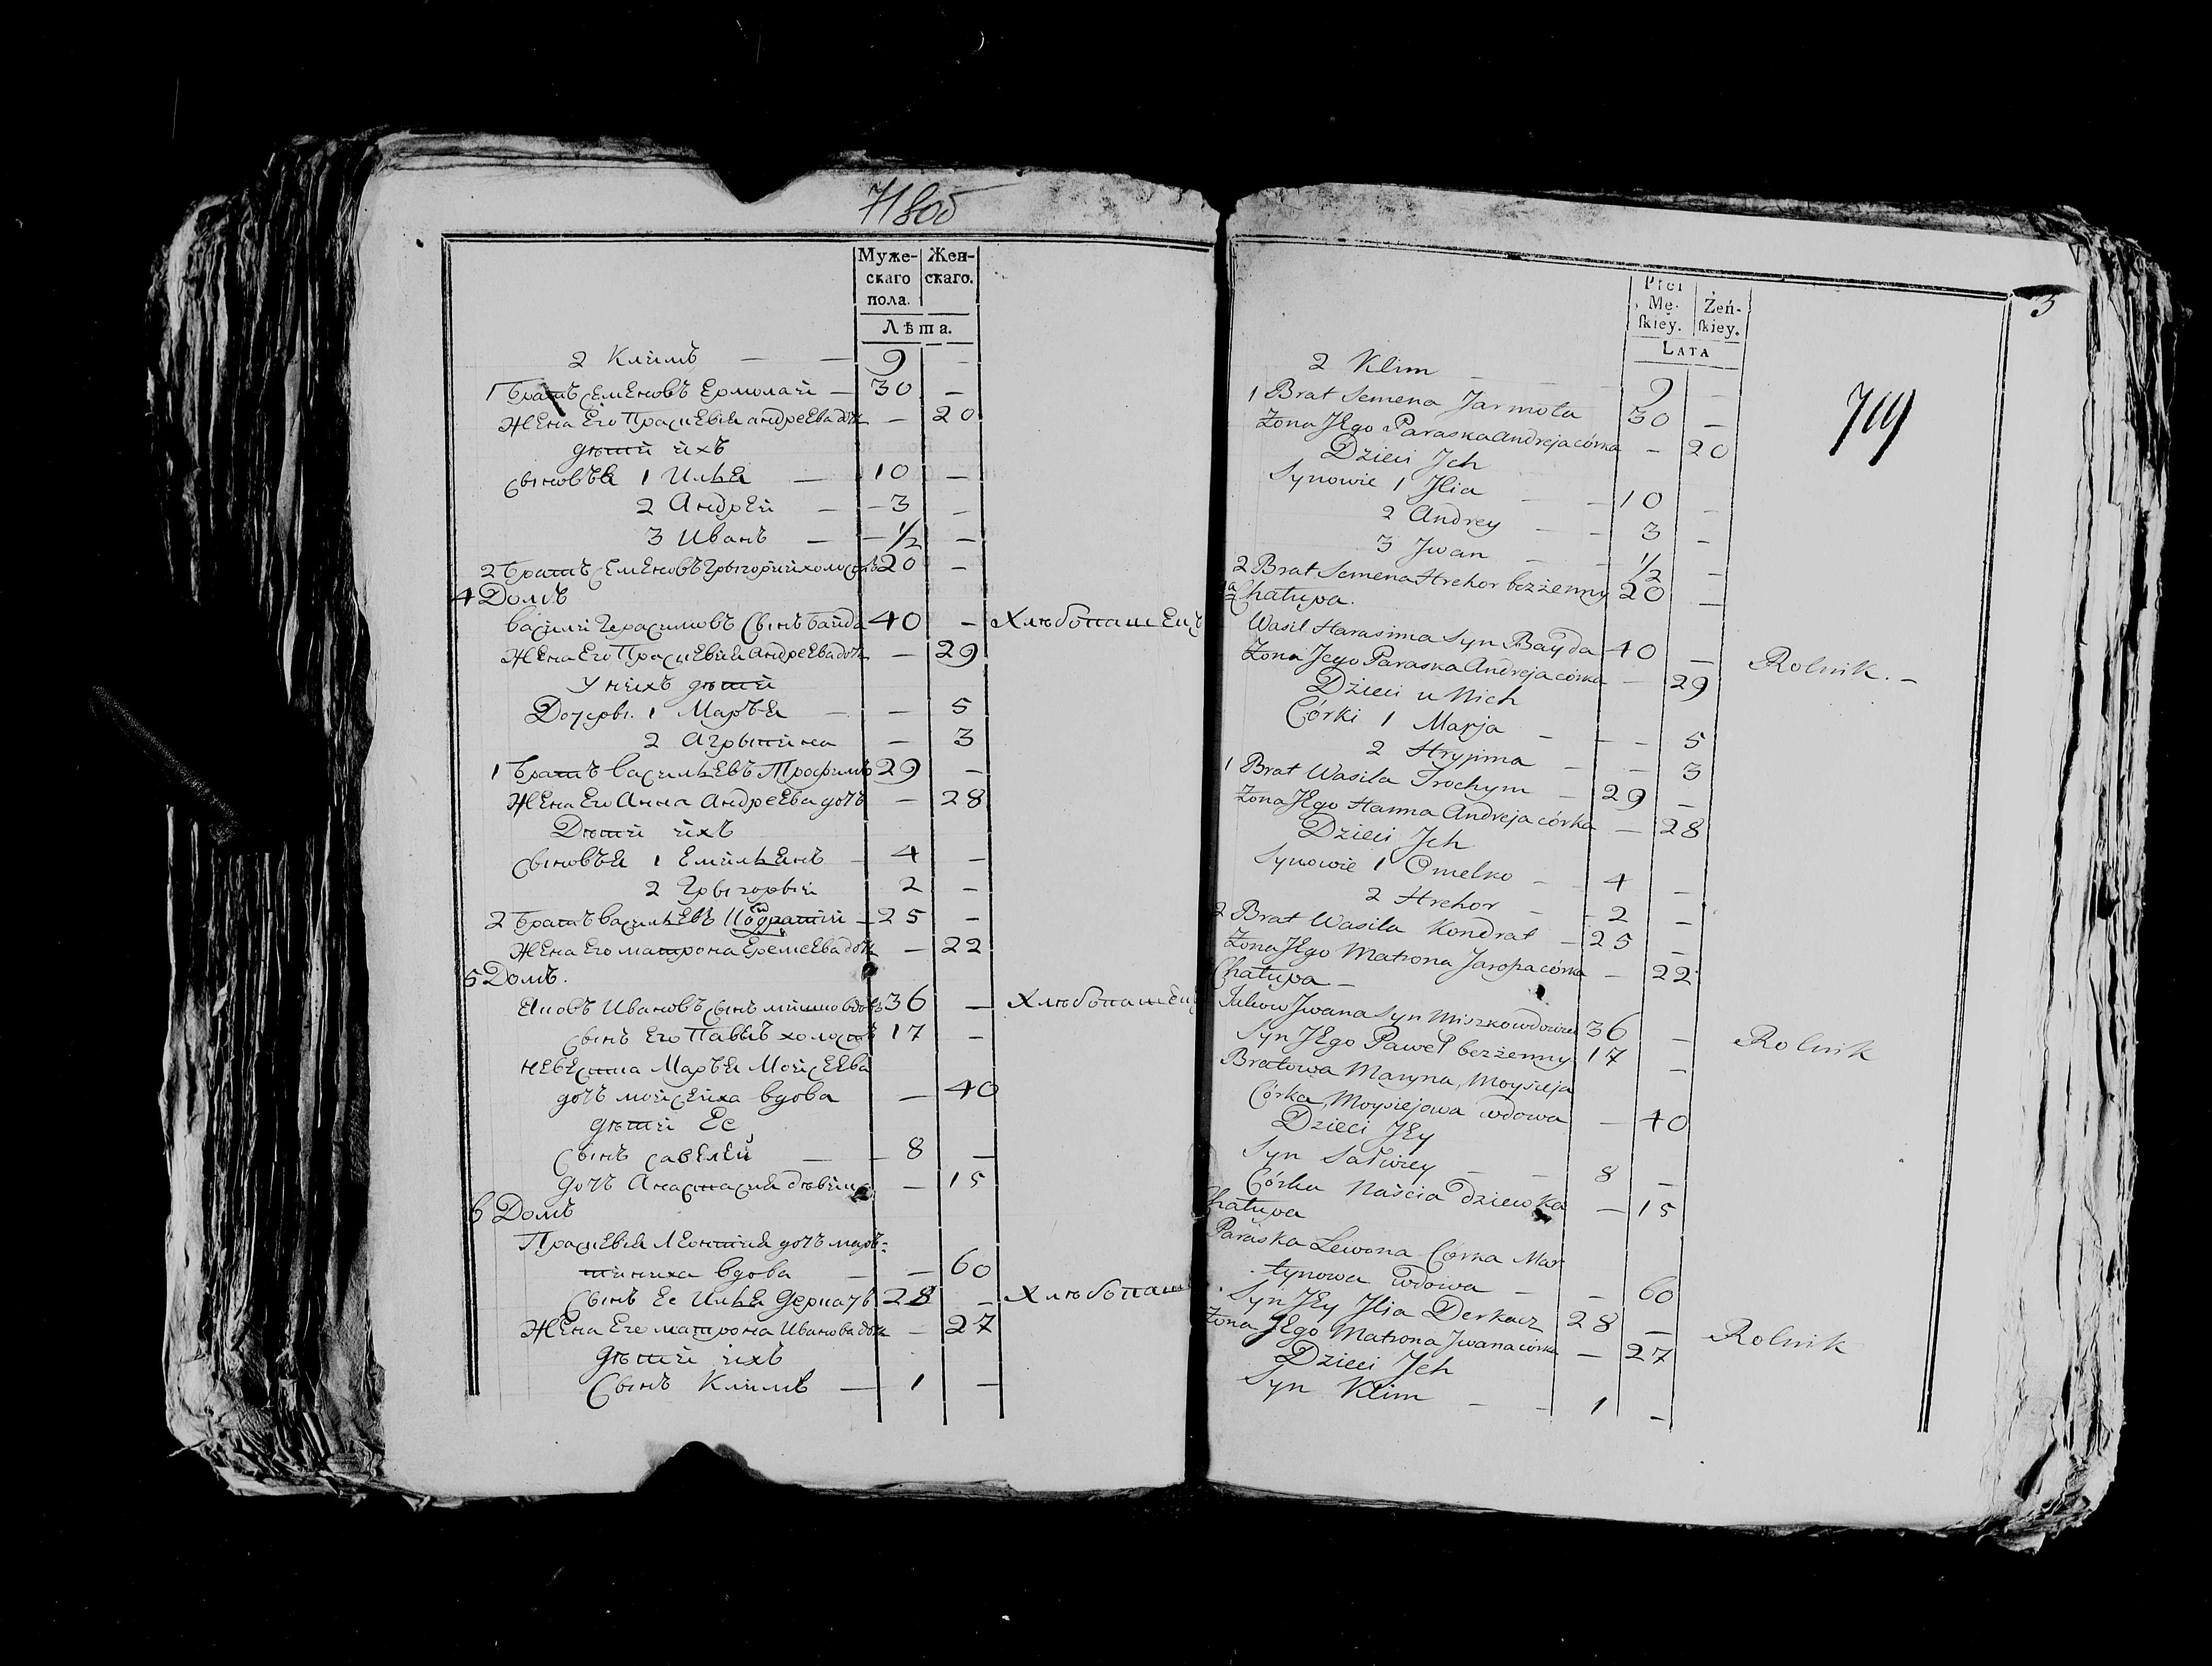 718об
Муже-
скаго
пола.
Жен-
скаго.
Лѣта.
2 Климъ — — 9 —
1 Братъ Семеновъ Ермолай — 30 —
Жена Его Праскевія андреева дочь — 20
дѣтй йхъ
Сыновъя 1 Илья — 10 —
2 Андрей — 3 —
3 Иванъ — 1/2 —
2 Братъ Семеновъ Грыгорий холостъ 20 —
4 Домъ
василй Герасимовъ Сынъ Байда 40 — Хлѣбопашецъ
Жена Его Праскевия Андреева дочь — 29
У нйхъ дѣтй
Дочеры. 1 Маръя — — 5
2 Агрыпйна — 3
1 Братъ васильевъ Трофимъ 29 —
Жена Его Анна Андреева дочь — 28
Дѣтй йхъ
Сыновъя 1 Емйльянъ — 4 —
2 Грыгорый 2 —
2 Братъ васильевъ Кодратй — 25 —
Жена Его матрона Еремеева дочь — 22
5 Домъ.
Яковъ Ивановъ сынъ мишко вдовъ 36 — Хлѣбопашецъ
Сынъ Его Павелъ холостъ 17 —
невестка Маръя Мойсеева
дочъ мойсейха вдова — 40
дѣтй Ее
Сынъ савелей — 8 —
дочъ Анастасия дѣвка — 15
6 Домъ
Праскевія Леонтия дочъ мары-
тйниха вдова — — 60
Сынъ Ее Илья Деркачъ 28 — Хлѣбопаш
Жена Его матрона Иванова дочь — 27
дѣтй йхъ
Сынъ Климъ — 1 —
3
719
Płci
Mę-
ſkiey.
Żeń-
ſkiey.
LATA
2 Klim — 9 —
1 Brat Semena Jarmoła 30 —
Żona Jego Paraska Andreja córka — 20
Dzieci Jch
Synowie 1 Jlia — 10 —
2 Andrey — 3 —
3 Jwan — 1/2 —
2 Brat Semena Hrehor bezżenny 20 —
Chałupa.
Wasil Harasima Syn Bayda 40 — Rolnik. —
Żona Jego Paraska Andreja córka — 29
Dzieci u Nich
Córki 1 Marja — — 5
2 Hrypina — 3
1 Brat Wasila Trochym — 29 —
Żona Jego Hanna Andreja córka — 28
Dzieci Jch
Synowie 1 Omelko — 4 —
2 Hrehor — 2 —
2 Brat Wasila Kondrat — 25 —
Żona Jego Matrona Jaroha córka — 22
Chałupa —
Jakow Jwana Syn Miszko wdowiec 36 — Rolnik
Syn Jego Paweł bezżenny 17 —
Bratowa Maryna, Moysieja
Córka, Moysiejowa wdowa — 40
Dzieci Jey
Syn Sawiey — 8 —
Córka Naścia Dziewka — 15
Chałupa
Paraska Lewona Córka Mar
tynowa wdowa — — 60
Syn Jey Jlia Derkacz 28 — Rolnik
Żona Jego Matrona Jwana córka — 27
Dzieci Jch
Syn Klim — 1 —